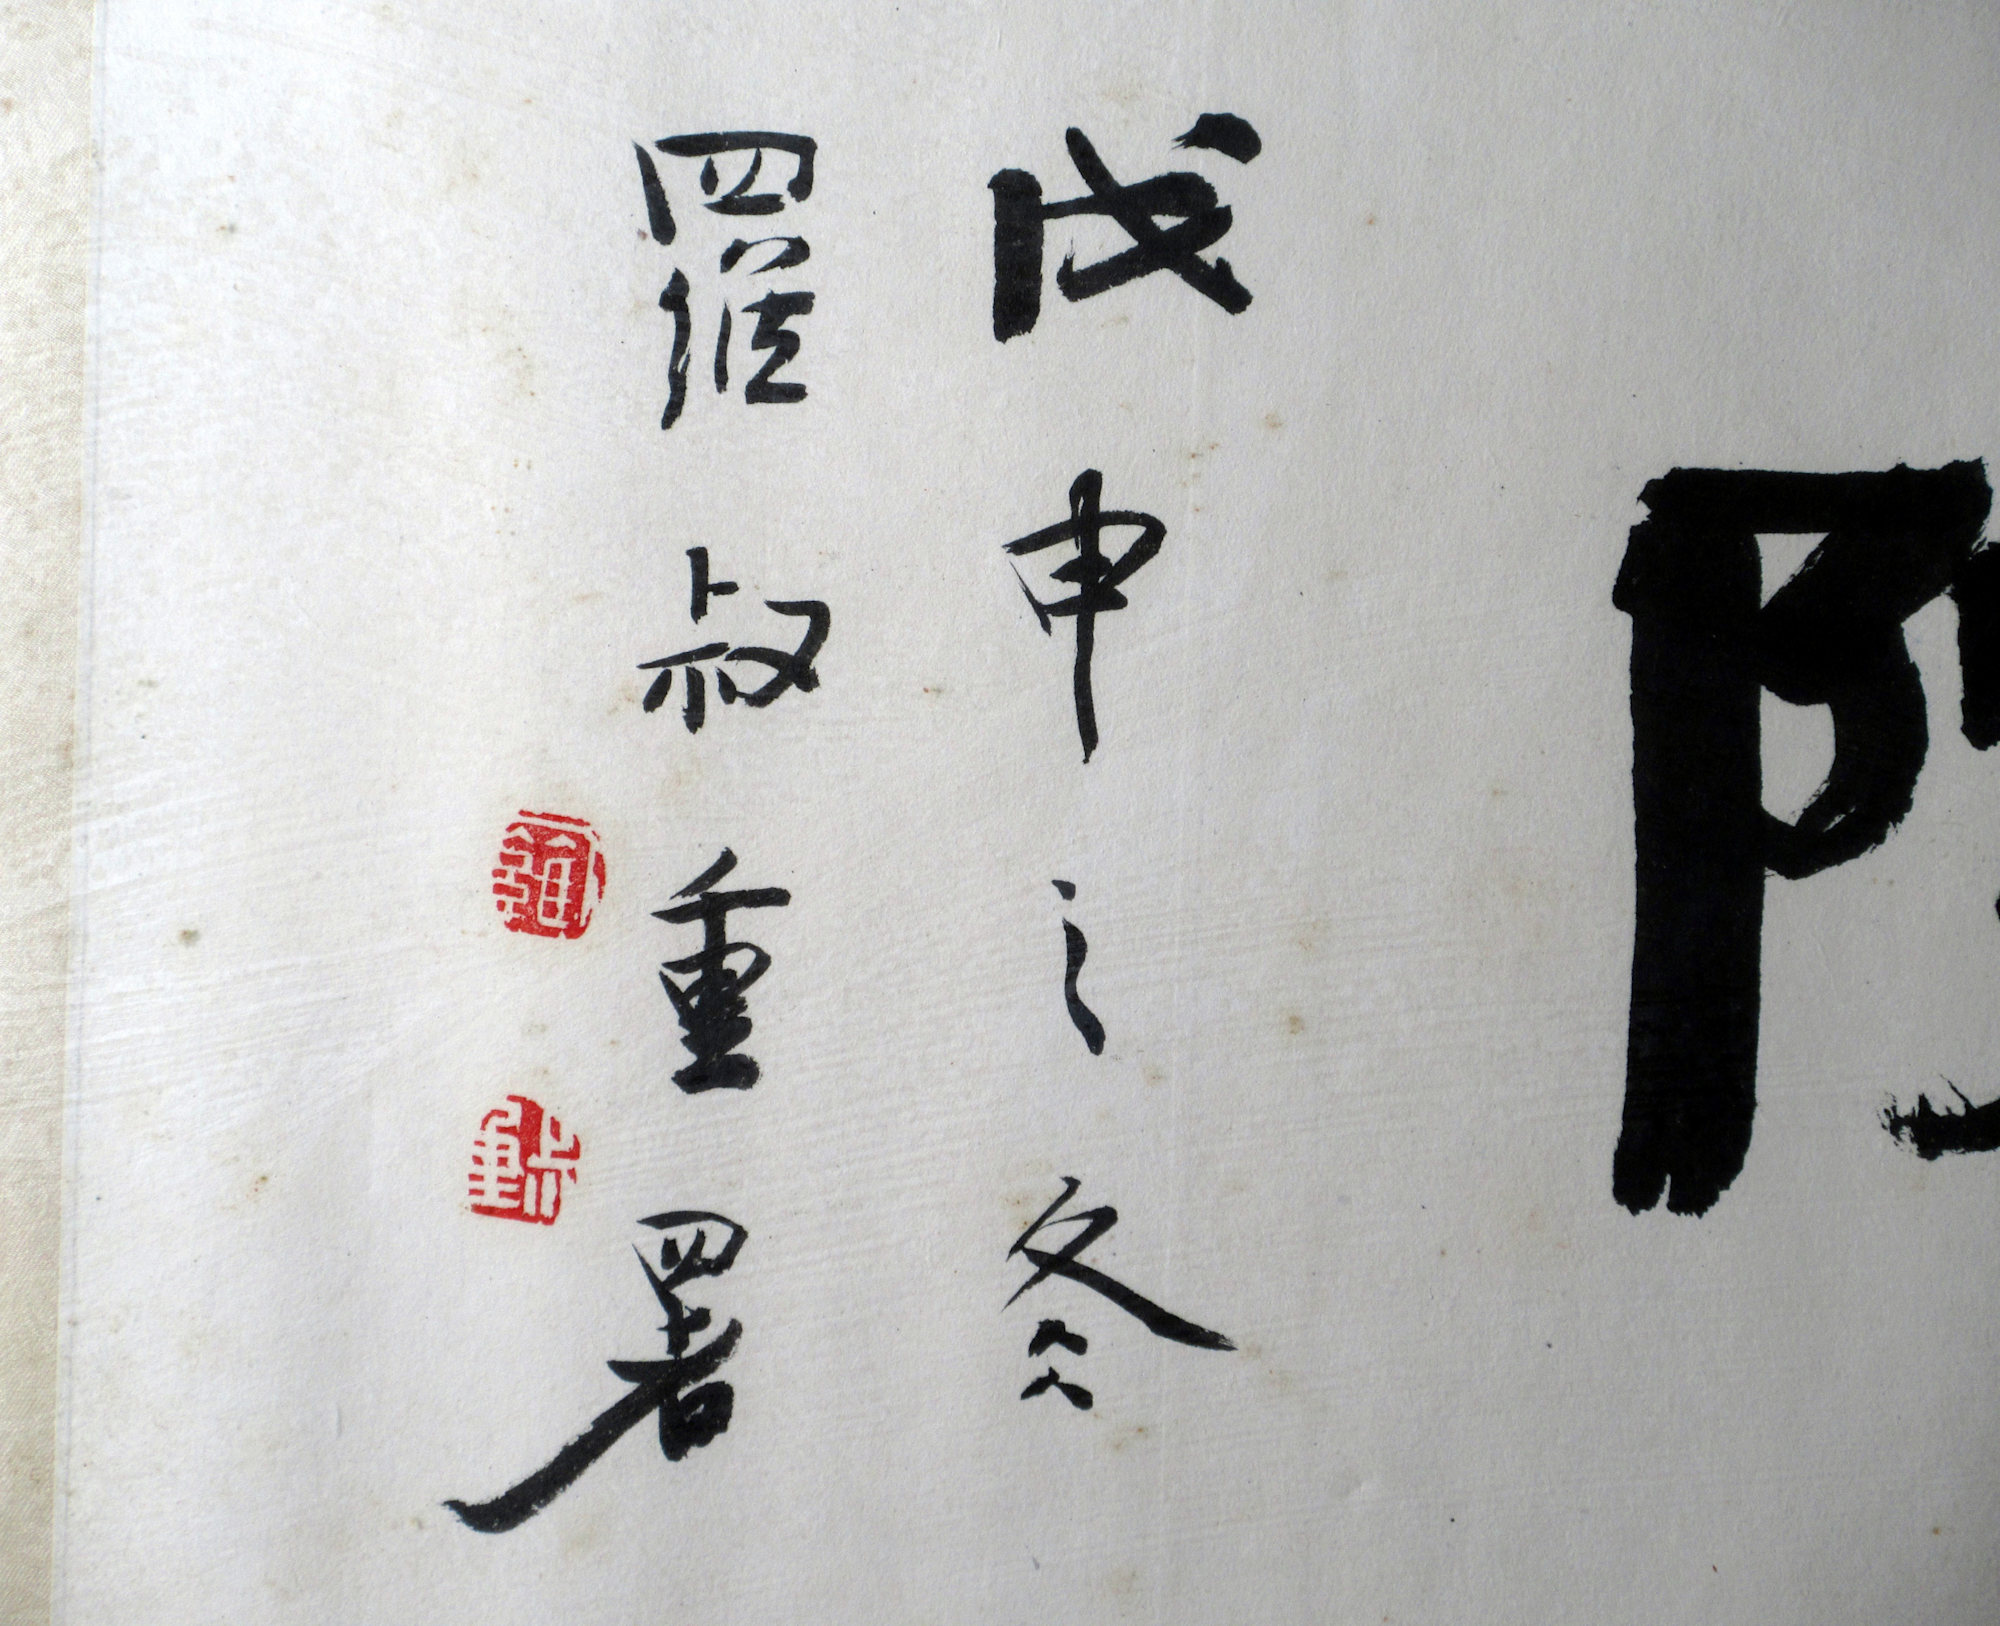 戊申之冬
羅叔重署